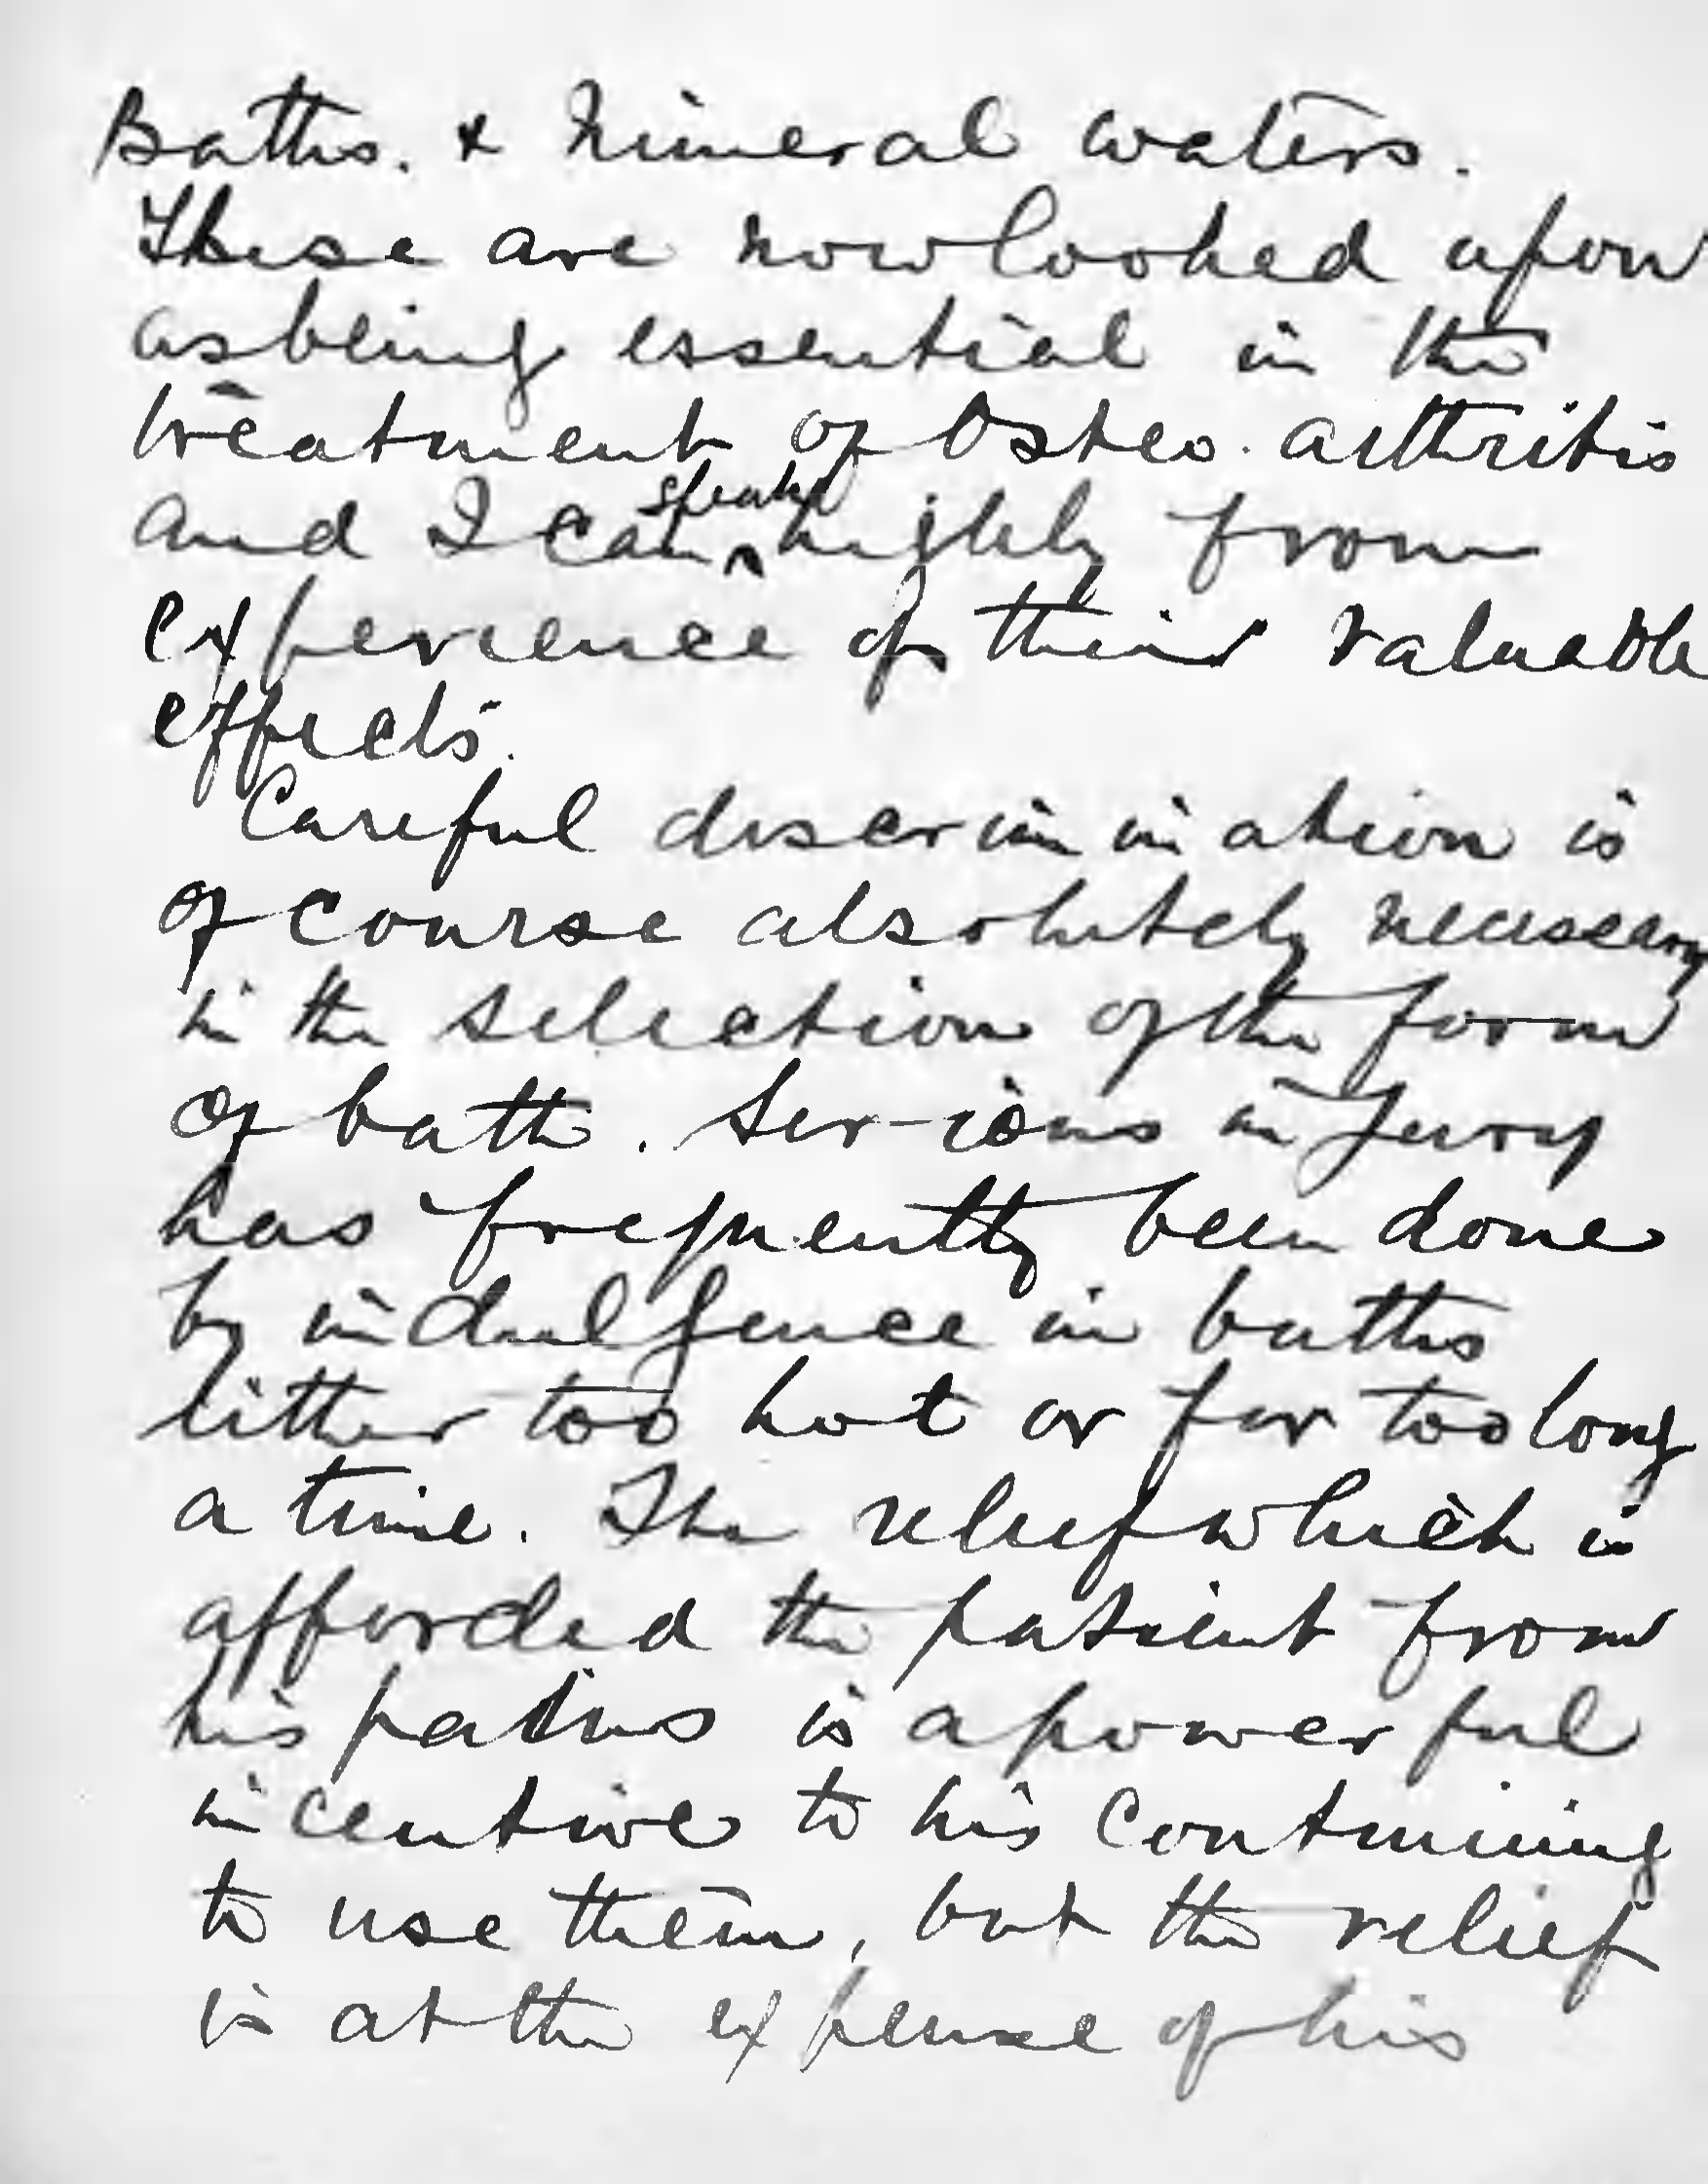 Baths. & Mineral waters.
These are now looked upon
as being essential in the
treatment of Osteo. arthritis
and I can speak highly from
experience of their valuable
effects.
Careful discrimination is
of course absolutely necessary
in the selection of the form
of bath. Ser-ious injury
has frequently been done
by indulgence in baths
either too hot or for too long
a time. The relief which is
afforded the patient from
his pains is a powerful
incentive to his continuing
to use them, but the relief
is at the expense of his